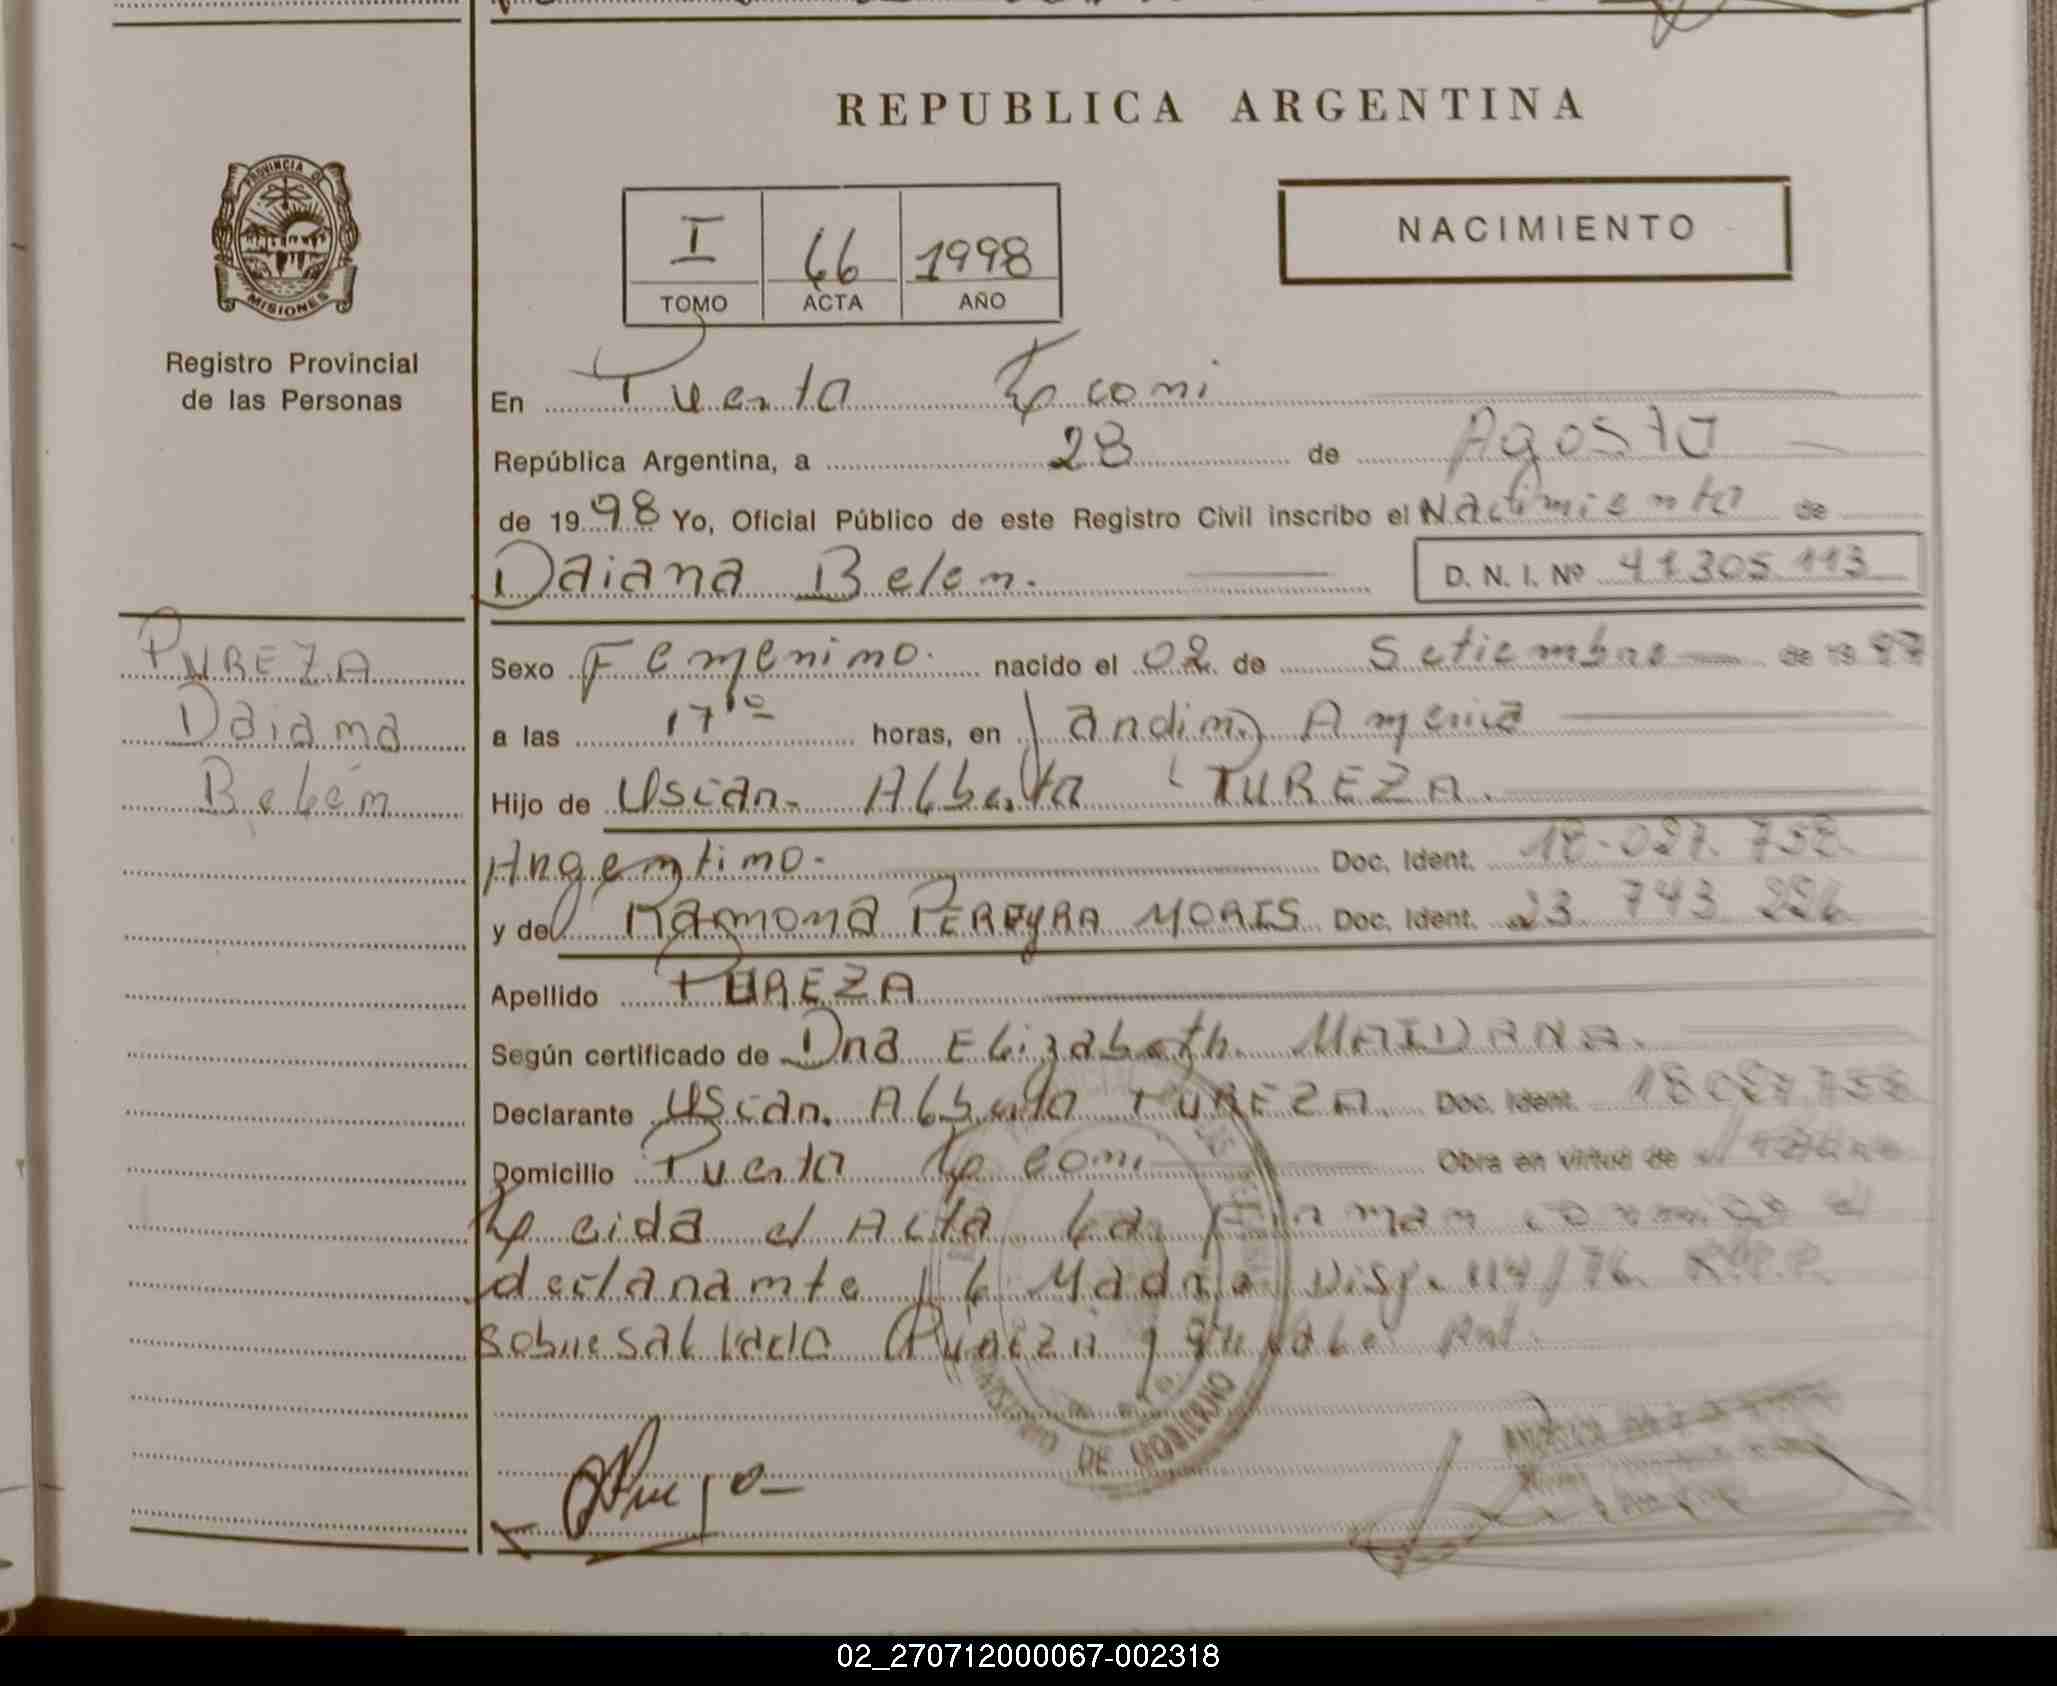 REPUBLICA ARGENTINA
PROVINCIA D
MISIONES
Registro Provincial
de las Personas
I 66 1998
TOMO ACTA AÑO
NACIMIENTO
En Puerto
República Argentina, a 28 de Agosto
de 1998 Yo, Oficial Público de este Registro Civil inscribo el Nacimiento de
Daiana Belen. D. N. I. Nº 41305113
PUREZA
Daiana
Belén
Sexo Femenino. nacido el 02 de Setiembre de 1997
a las 17 horas, en Jardin America
Hijo de Oscar Alberto PUREZA.
Argentino. Doc. Ident. 18.027.758
y de Ramona PEREYRA MORIS Doc. Ident. 23 743 226
Apellido PUREZA
Según certificado de Dna Elizabeth MAIDANA.
Declarante Oscar Alberto PUREZA Doc. Ident. 18027.758
Domicilio Puerto Obra en virtud de
el Acta la firman conmigo el
declarante y la Madre Disp. 114/76 R.P.P.
sobresaltado
DE GOBIERNO
02_270712000067-002318